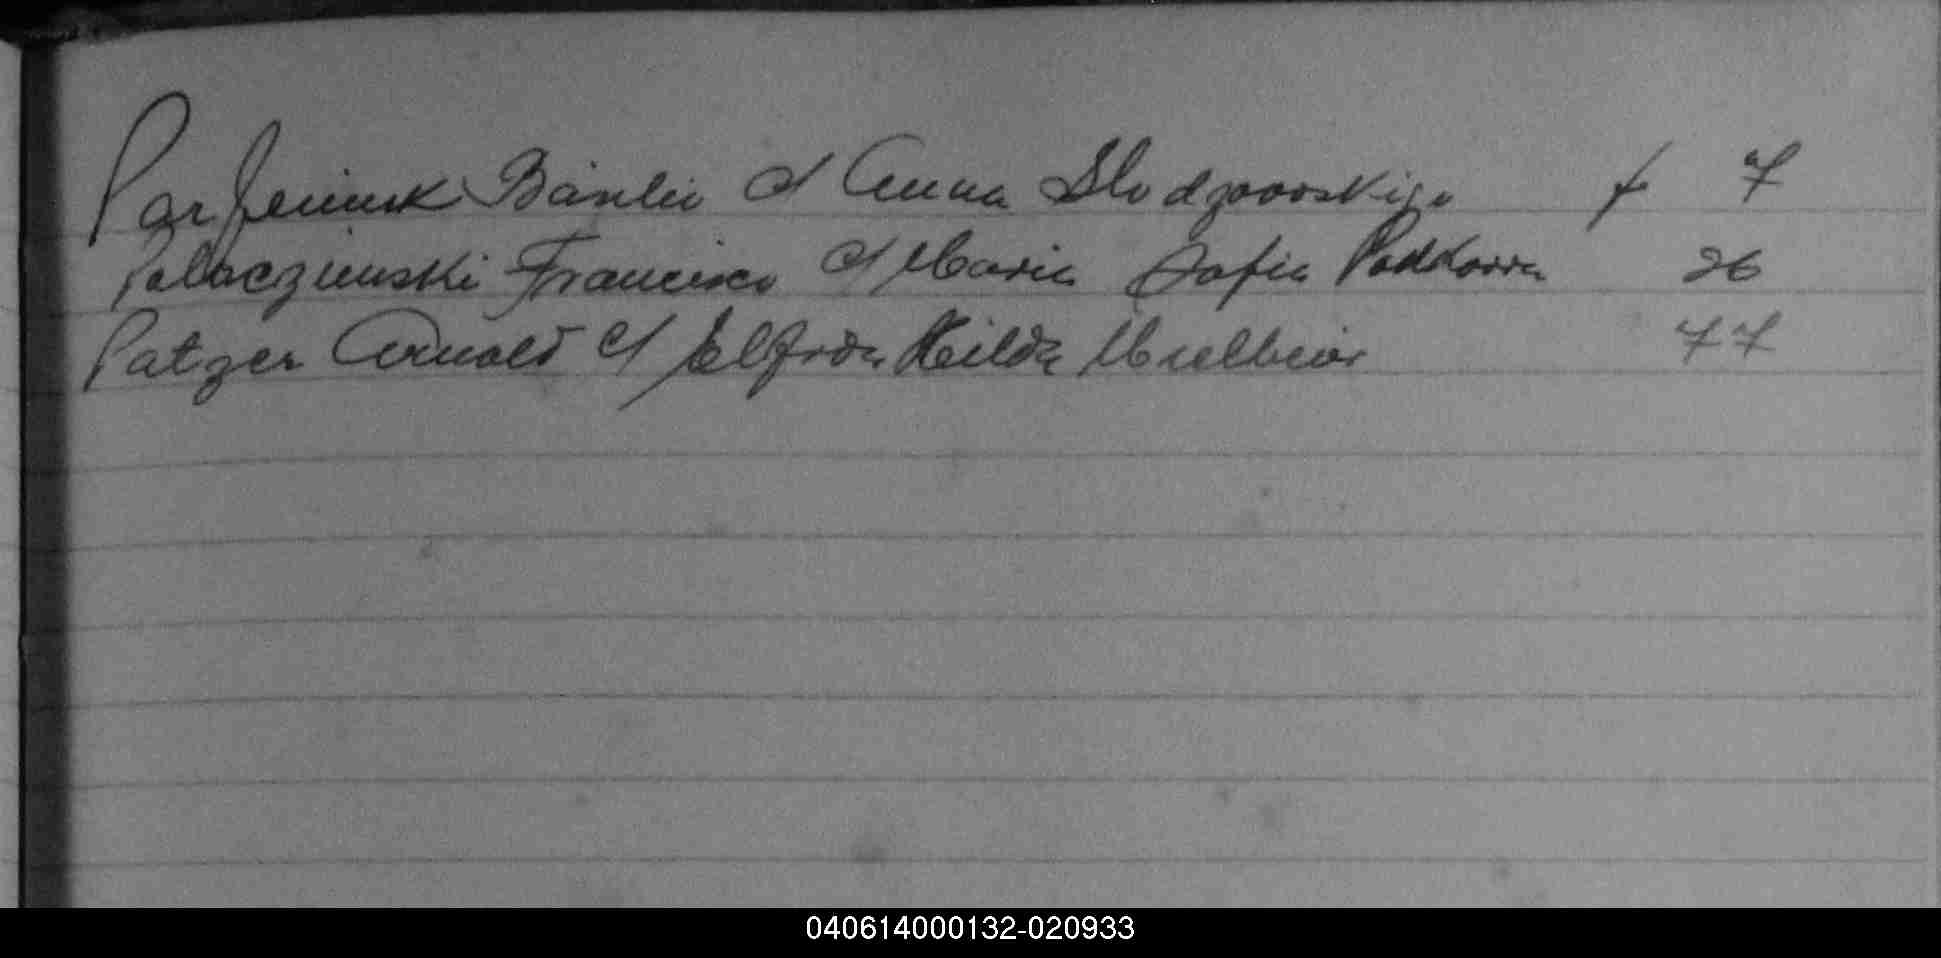 Parfeniuk Basilio c/ Anna Slodzowskiga f 7
Palaczinuski Francisco c/ Maria Sofia Poddowa 26
Patzer Arnold c/ Elfrida Hilda 77
040614000132-020933